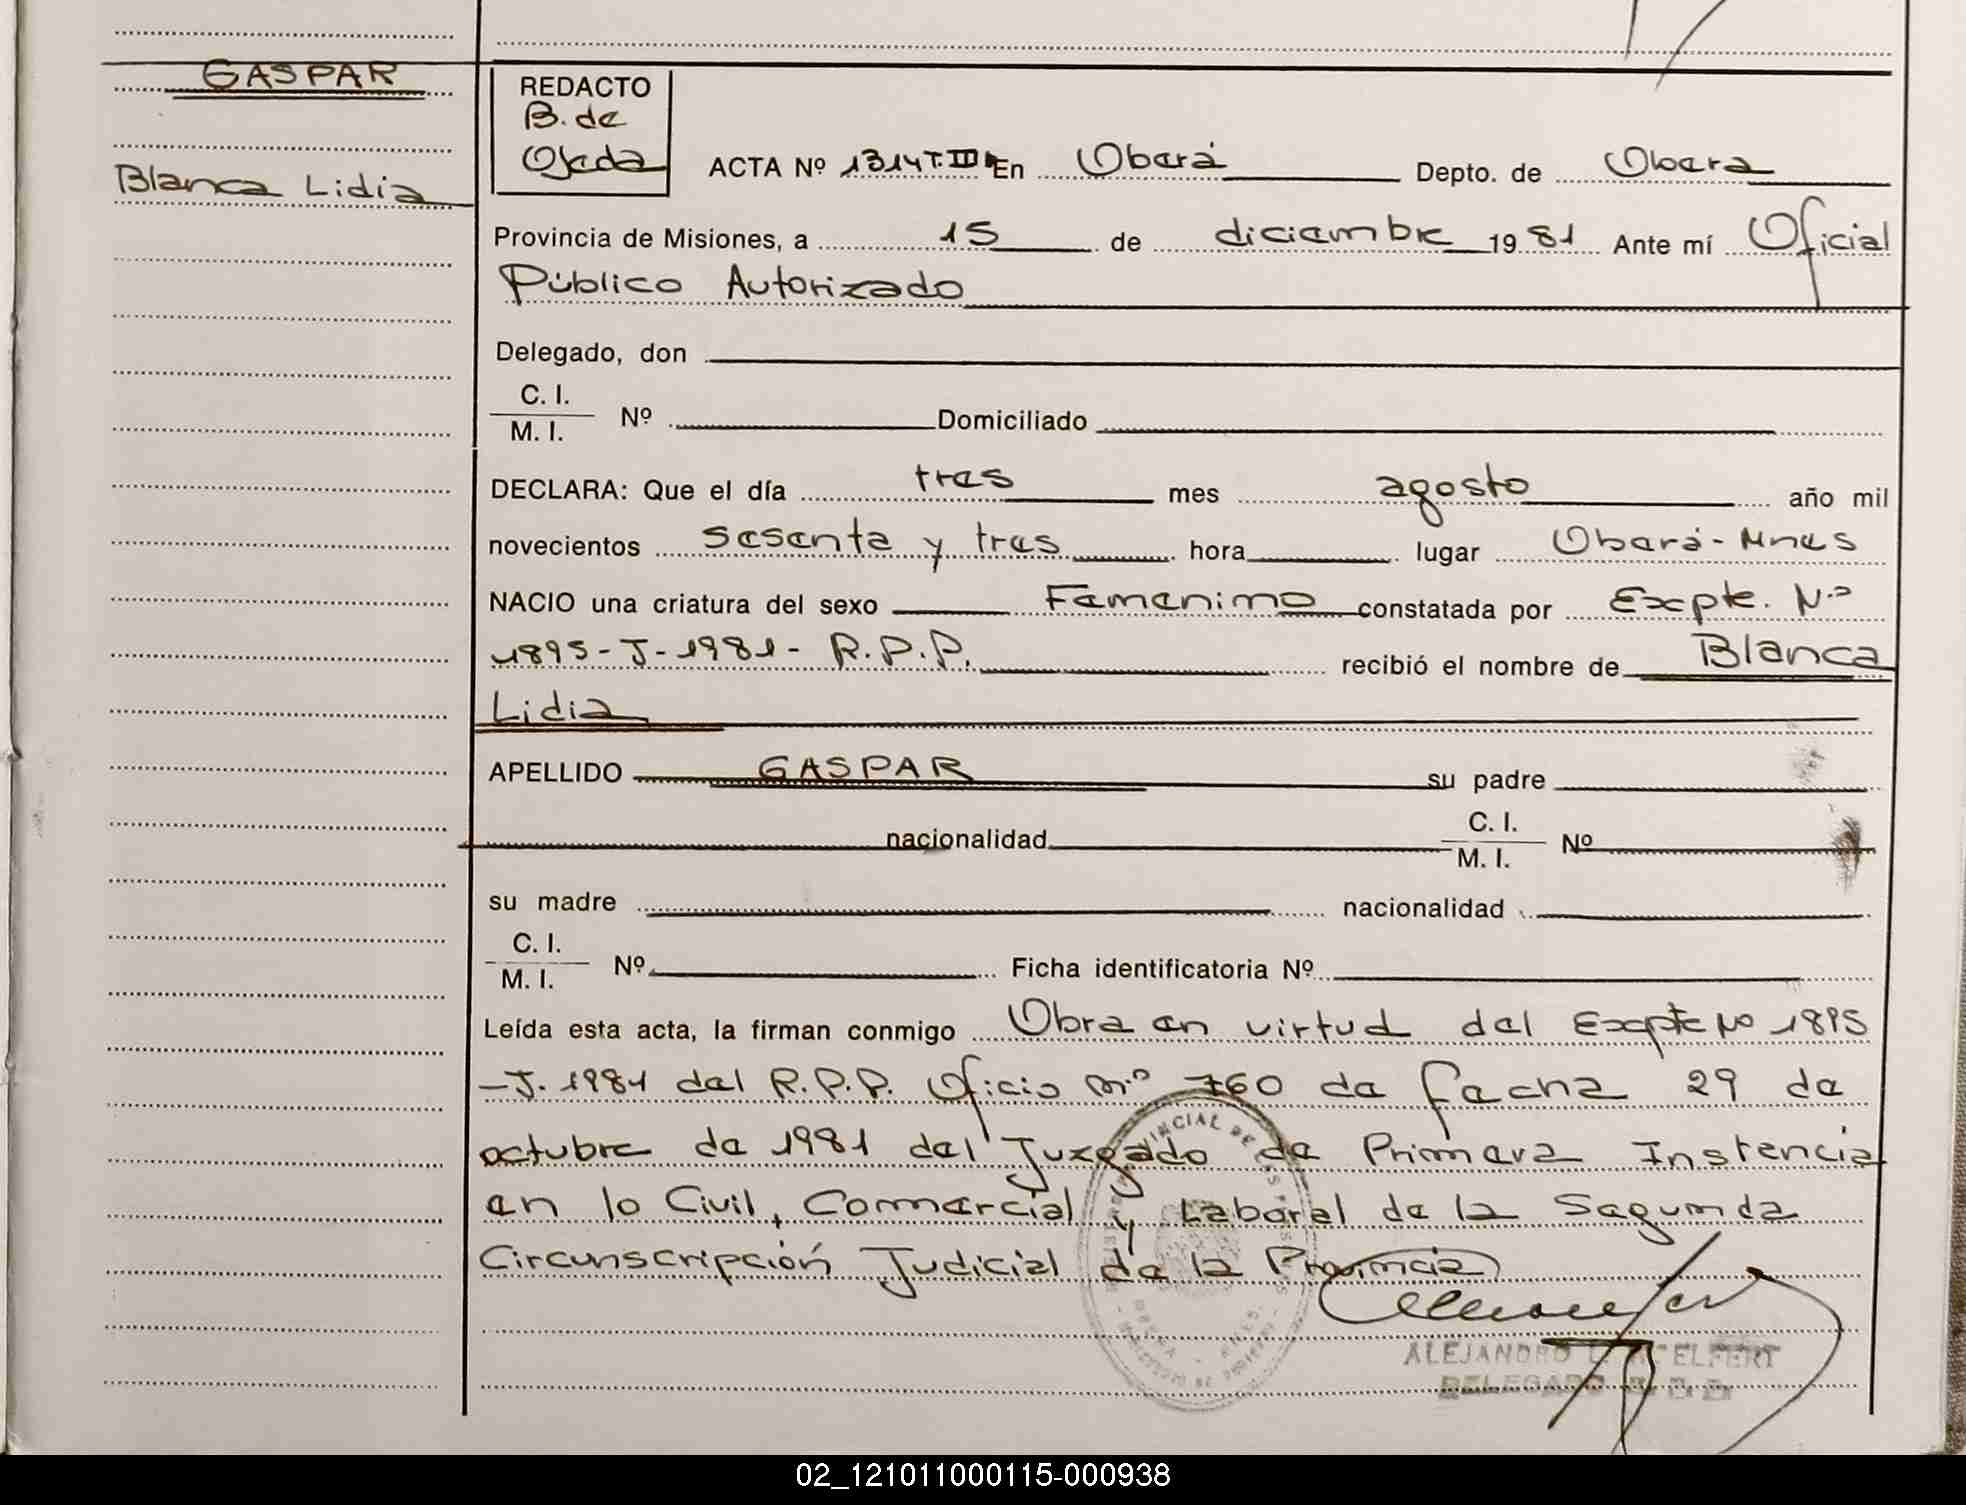 GASPAR
Blanca Lidia
REDACTO
B. de
Ojeda
ACTA Nº 1314 T. III En Oberá Depto. de Obera
Provincia de Misiones, a 15 de diciembre 19 81 Ante mí Oficial
Público Autorizado
Delegado, don
C. I.
M. I. Nº Domiciliado
DECLARA: Que el día tres mes agosto año mil
novecientos sesenta y tres hora lugar Oberá - Mnes
NACIO una criatura del sexo Femenimo constatada por Expte. Nº
1895 - J - 1981 - R.P.P. recibió el nombre de Blanca
Lidia
APELLIDO GASPAR su padre
nacionalidad C. I.
M. I. Nº
su madre nacionalidad
C. I.
M. I. Nº Ficha identificatoria Nº
Leída esta acta, la firman conmigo Obra en virtud del Expte Nº 1895
- J. 1981 del R.P.P. Oficio Nº 760 de fecha 29 de
octubre de 1981 del Juzgado de Primera Instancia
en lo Civil, Comercial y Laboral de la Segunda
Circunscripción Judicial de la Provincia
ALEJANDRO
DELEGADO
02_121011000115-000938